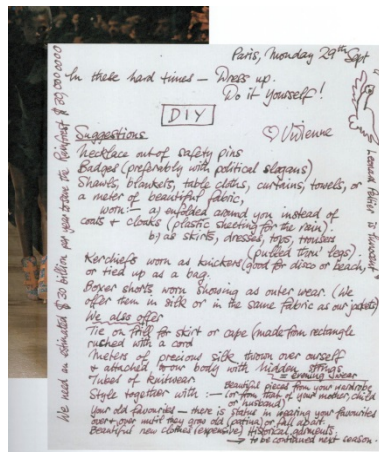 Paris, Monday 29th Sept
In these hard times — Dress up.
Do it Yourself!
DIY
♡ Vivienne
Suggestions
Necklace out of safety pins
Badges (preferably with political slogans)
Shawls, blankets, table cloths, curtains, towels, or
a meter of beautiful fabric,
worn:— a) enfolded around you instead of
coats & cloaks (plastic sheeting for the rain).
b) as skirts, dresses, tops, trousers
(pulled thru' legs).
Kerchiefs worn as knickers (good for disco or beach,
or tied up as a bag.
Boxer shorts worn showing as outer wear. (We
offer them in silk or in the same fabric as our jackets)
We also offer
Tie on frill for skirt or cape (made from rectangle
rushed with a cord
Meters of precious silk thrown over ourself
& attached to our body with hidden strings
= evening wear
Tubes of knitwear
Style together with :— Beautiful pieces from your wardrobe
(or from that of your mother, child
or husband)
Your old favourites — there is status in wearing your favourites
over & over until they grow old (patina) or fall apart.
Beautiful new clothes (expensive) Historical garments.
→ to be continued next season.
We need an estimated $30 billion per year to save the Rainforest $30,000,000,000
Leonard Peltier is innocent